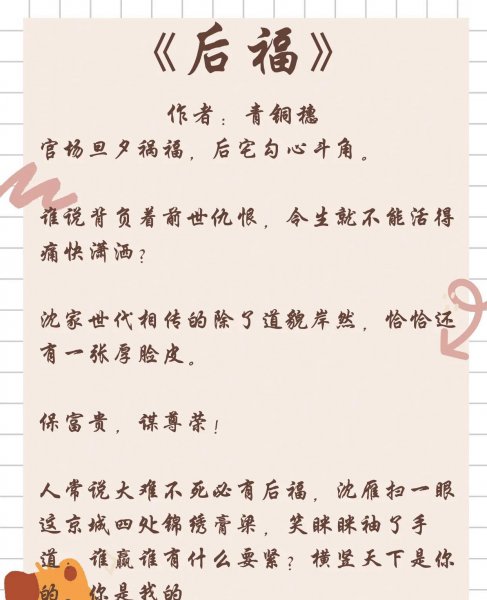 《后福》
作者：青铜穗
官场旦夕祸福，后宅勾心斗角。
谁说背负着前世仇恨，今生就不能活得
痛快潇洒？
沈家世代相传的除了道貌岸然，恰恰还
有一张厚脸皮。
保富贵，谋尊荣！
人常说大难不死必有后福，沈雁扫一眼
这京城四处锦绣膏粱，笑眯眯袖了手
道：谁赢谁有什么要紧？横竖天下是你
的，你是我的